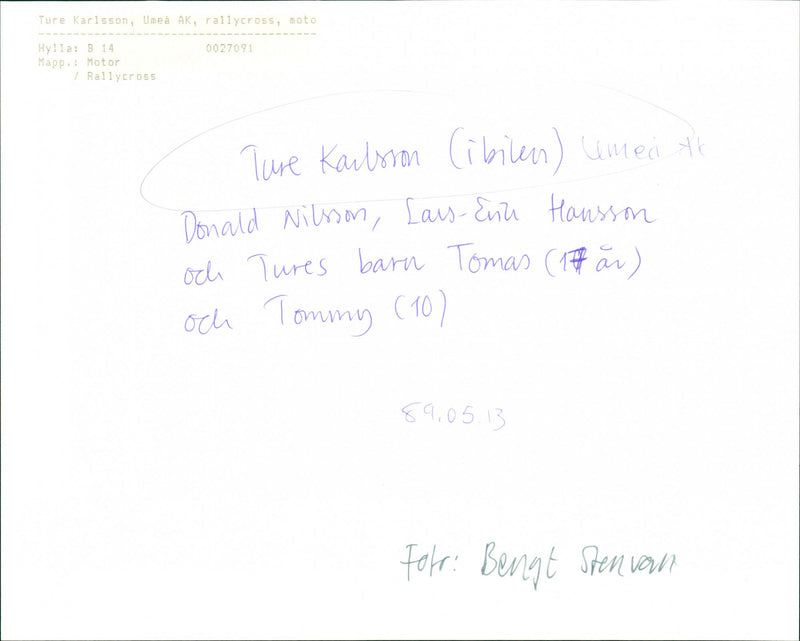 Ture Karlsson, Umeå AK, rallycross, moto
Hylla: B 14 0027091
Mapp.: Motor
/ Rallycross
Ture Karlsson (i bilen) Umeå AK
Donald Nilsson, Lars-Erik Hansson
och Tures barn Tomas (17 år)
och Tommy (10)
89.05.13
Foto: Bengt Stenvall